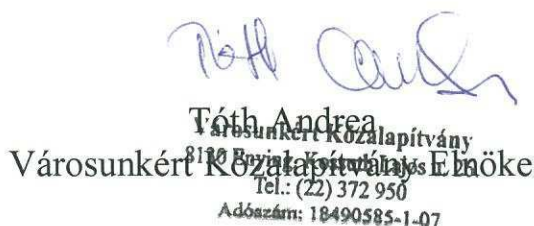 Tóth Andrea
Városunkért Közalapítvány
Városunkért Közalapítvány Elnöke
8130 Enying, Kossuth Lajos u. 26.
Tel.: (22) 372 950
Adószám: 18490585-1-07